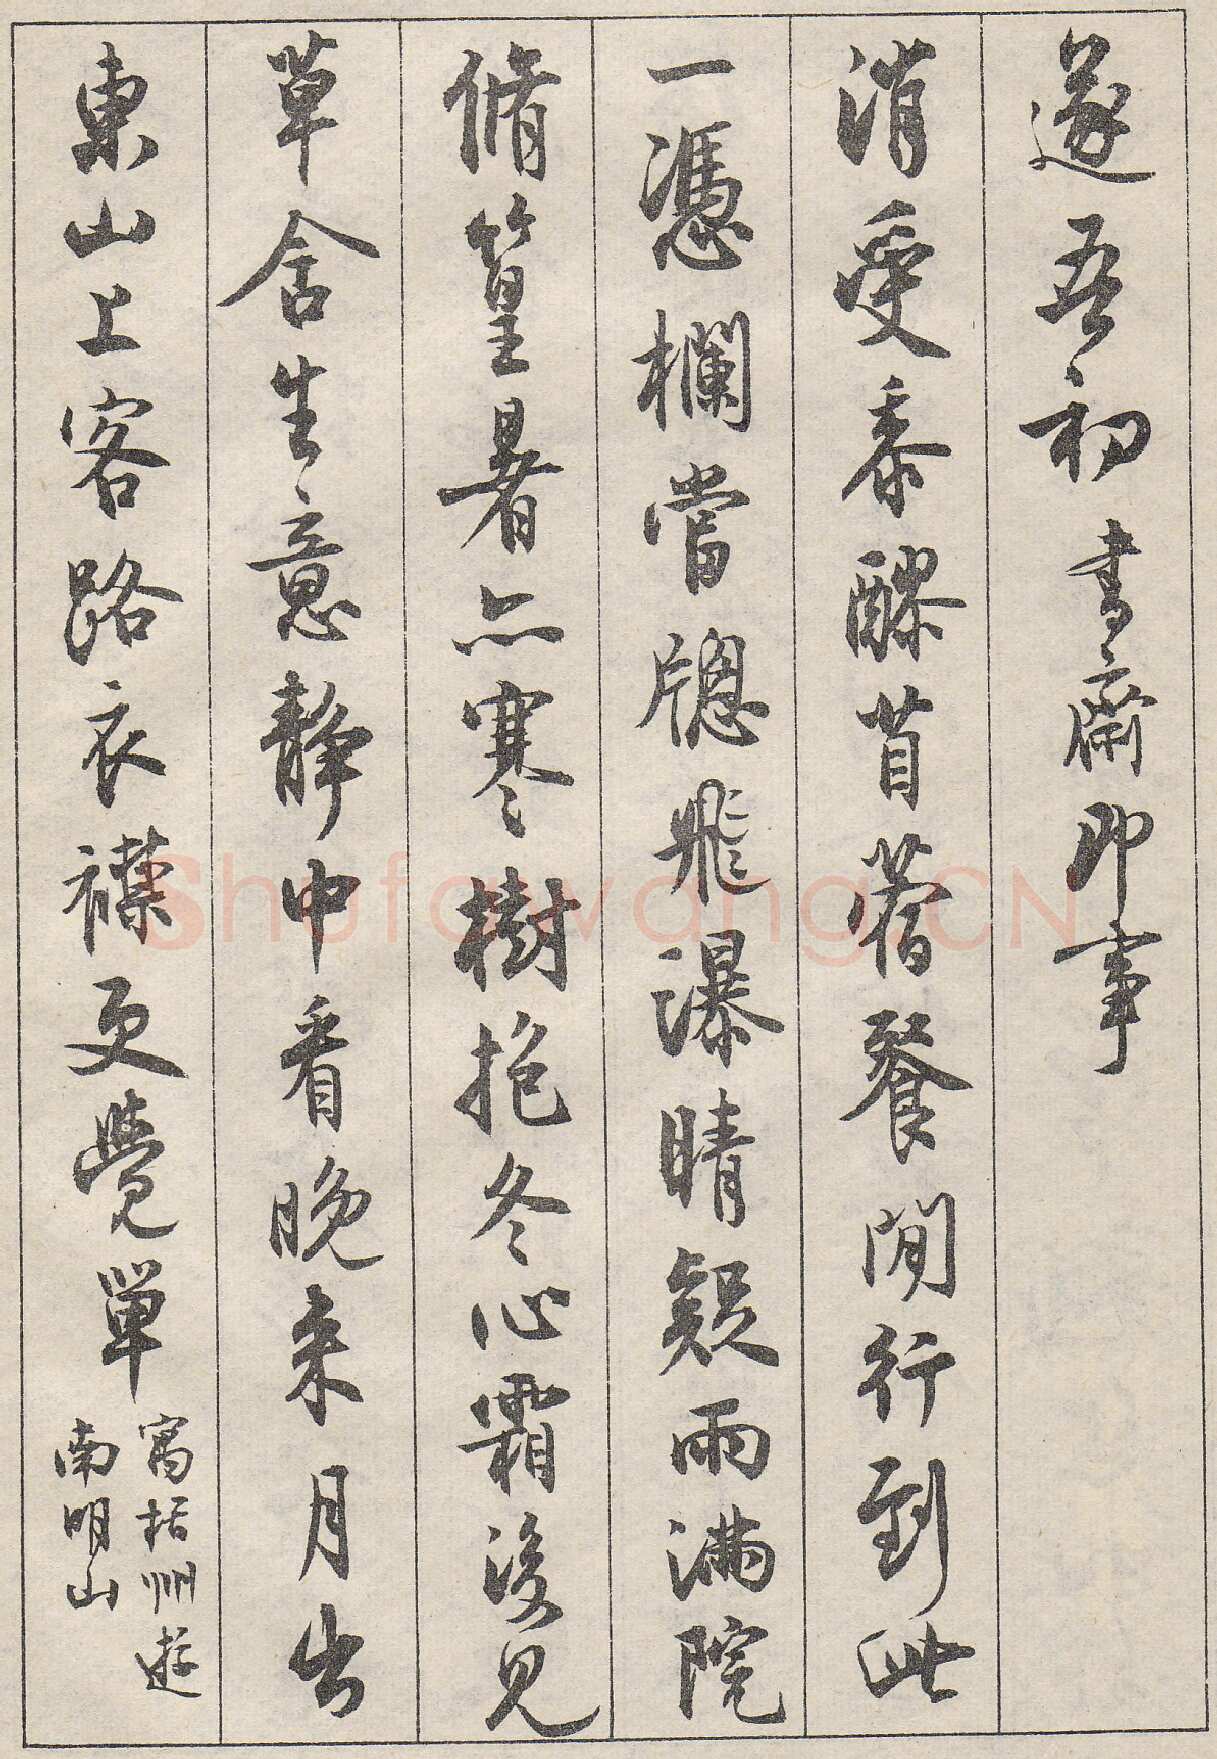 遂吾初書齋即事
消受黍醪苜蓿餐閒行到此
一憑欄當牕飛瀑晴疑雨滿院
脩篁暑亦寒樹抱冬心霜後見
草含生意靜中看晚来月出
東山上客路衣襟更覺單
寓括州遊
南明山
Shufawang.CN